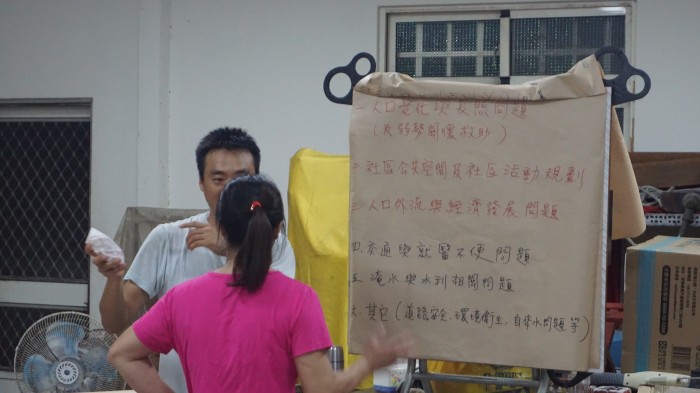 一.人口老化與長照問題
(及弱勢關懷救助)
二.社區公共空間及社區活動規劃
三.人口外流與經濟發展問題
四.交通與就醫不便問題
五.淹水與水利相關問題
六.其它(道路安全、環境衛生、自來水問題等)